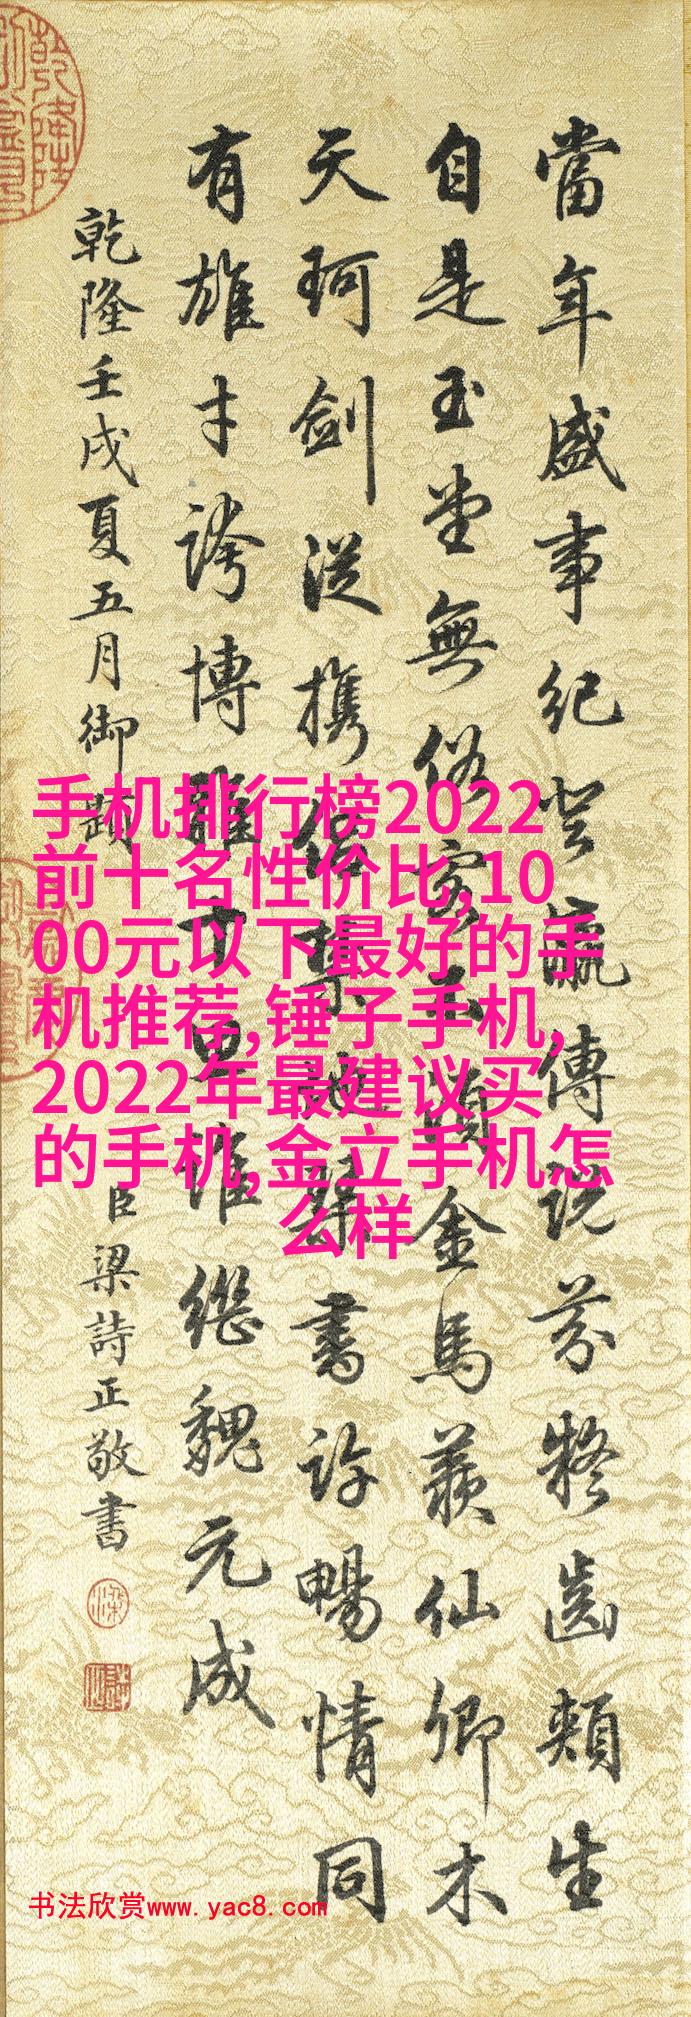 當年盛事紀登瀛傳說芬齒頰生
自是玉堂無俗客金馬羨仙卿木
天珂劍從携琴書許暢情同
有雄才誇博雅十思誰繼魏元成
乾隆壬戌夏五月御題
臣梁詩正敬書
手机排行榜2022
前十名性价比,10
00元以下最好的手
机推荐,锤子手机,
2022年最建议买
的手机,金立手机怎
么样
书法欣赏www.yac8.com